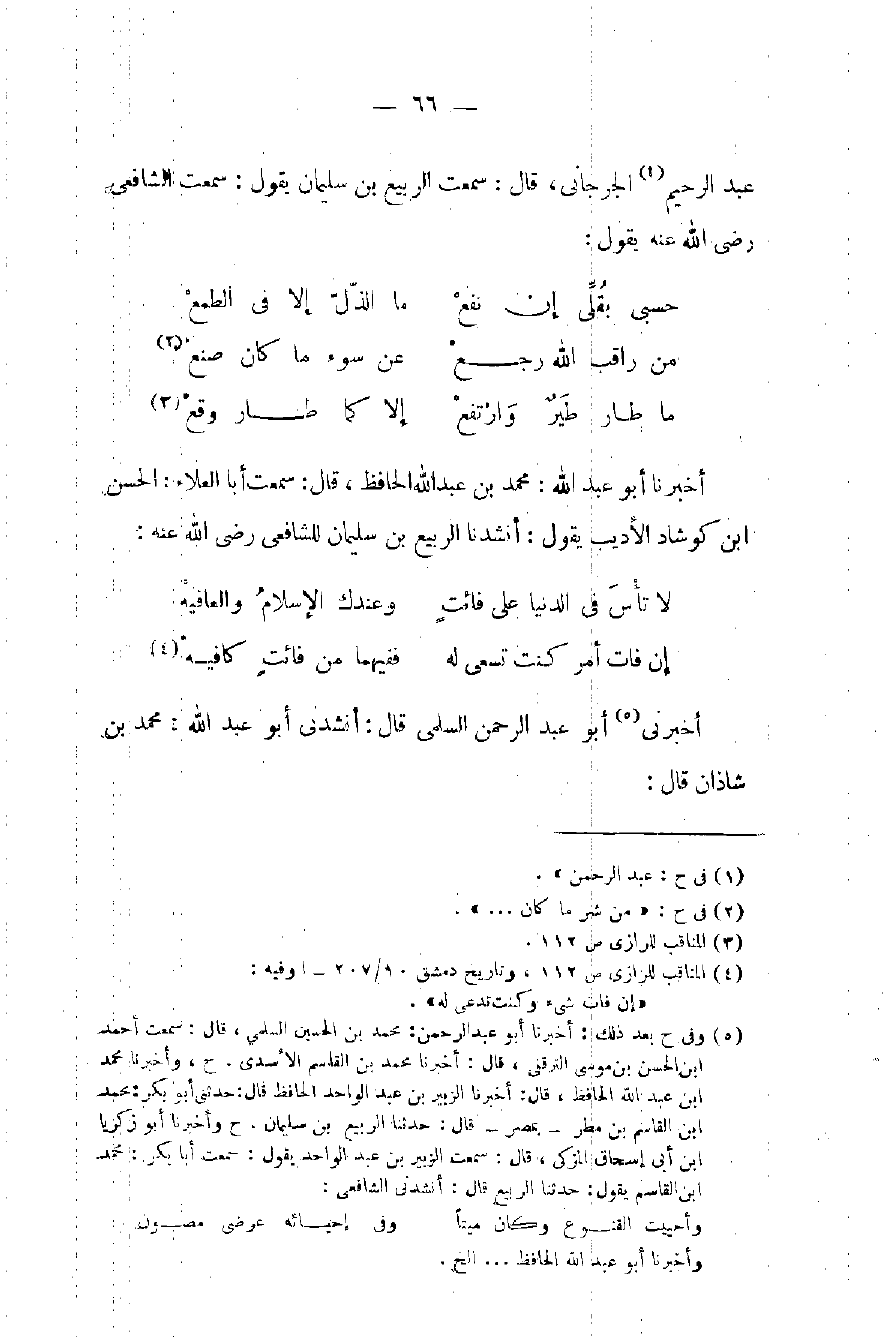 — ٦٦ —
عبد الرحيم(١) الجرجانى، قال : سمعت الربيع بن سليمان يقول : سمعت الشافعى
رضى الله عنه يقول :
حسبى بقُلِّى إن نفعْ ما الذّلّ إلا فى الطمعْ
من راقب الله رجعْ عن سوء ما كان صنعْ(٢)
ما طار طَيَرٌ وَارْتفعْ إلا كما طار وقعْ(٣)
أخبرنا أبو عبد الله : محمد بن عبد الله الحافظ ، قال : سمعت أبا العلاء : الحسن
ابن كوشاد الأديب يقول : أنشدنا الربيع بن سليمان للشافعى رضى الله عنه :
لا تأْسَ فى الدنيا على فائتٍ وعندك الإسلامُ والعافيهْ
إن فات أمر كنت تسعى له ففيهما من فائتٍ كافيهْ(٤)
أخبرنى(٥) أبو عبد الرحمن السلمى قال : أنشدنى أبو عبد الله : محمد بن
شاذان قال :
(١) فى ح : عبد الرحمن » .
(٢) فى ح : « من شر ما كان ... » .
(٣) المناقب للرازى ص ١١٢ .
(٤) المناقب للرازى ص ١١٢ ، وتاريخ دمشق ٢٠٧/٩٠ – ا وفيه :
«إن فات شىء وكنت تدعى له» .
(٥) وفى ح بعد ذلك : أخبرنا أبو عبد الرحمن : محمد بن الحسين السلمي ، قال : سمعت أحمد
ابن الحسن بن موسى الترقنى ، قال : أخبرنا محمد بن القاسم الأسدى . ح ، وأخبرنا محمد
ابن عبد الله الحافظ ، قال : أخبرنا الزبير بن عبد الواحد الحافظ قال : حدثنى أبو بكر : محمد
ابن القاسم بن مطر – بمصر – قال : حدثنا الربيع بن سليمان . ح وأخبرنا أبو زكريا
ابن أبى إسحاق المزكى ، قال : سمعت الزبير بن عبد الواحد يقول : سمعت أبا بكر : محمد
ابن القاسم يقول : حدثنا الربيع قال : أنشدنى الشافعى :
وأحييت القنوع وكان ميتاً وفى إحيائه عرضى مصون
وأخبرنا أبو عبد الله الحافظ ... الخ .